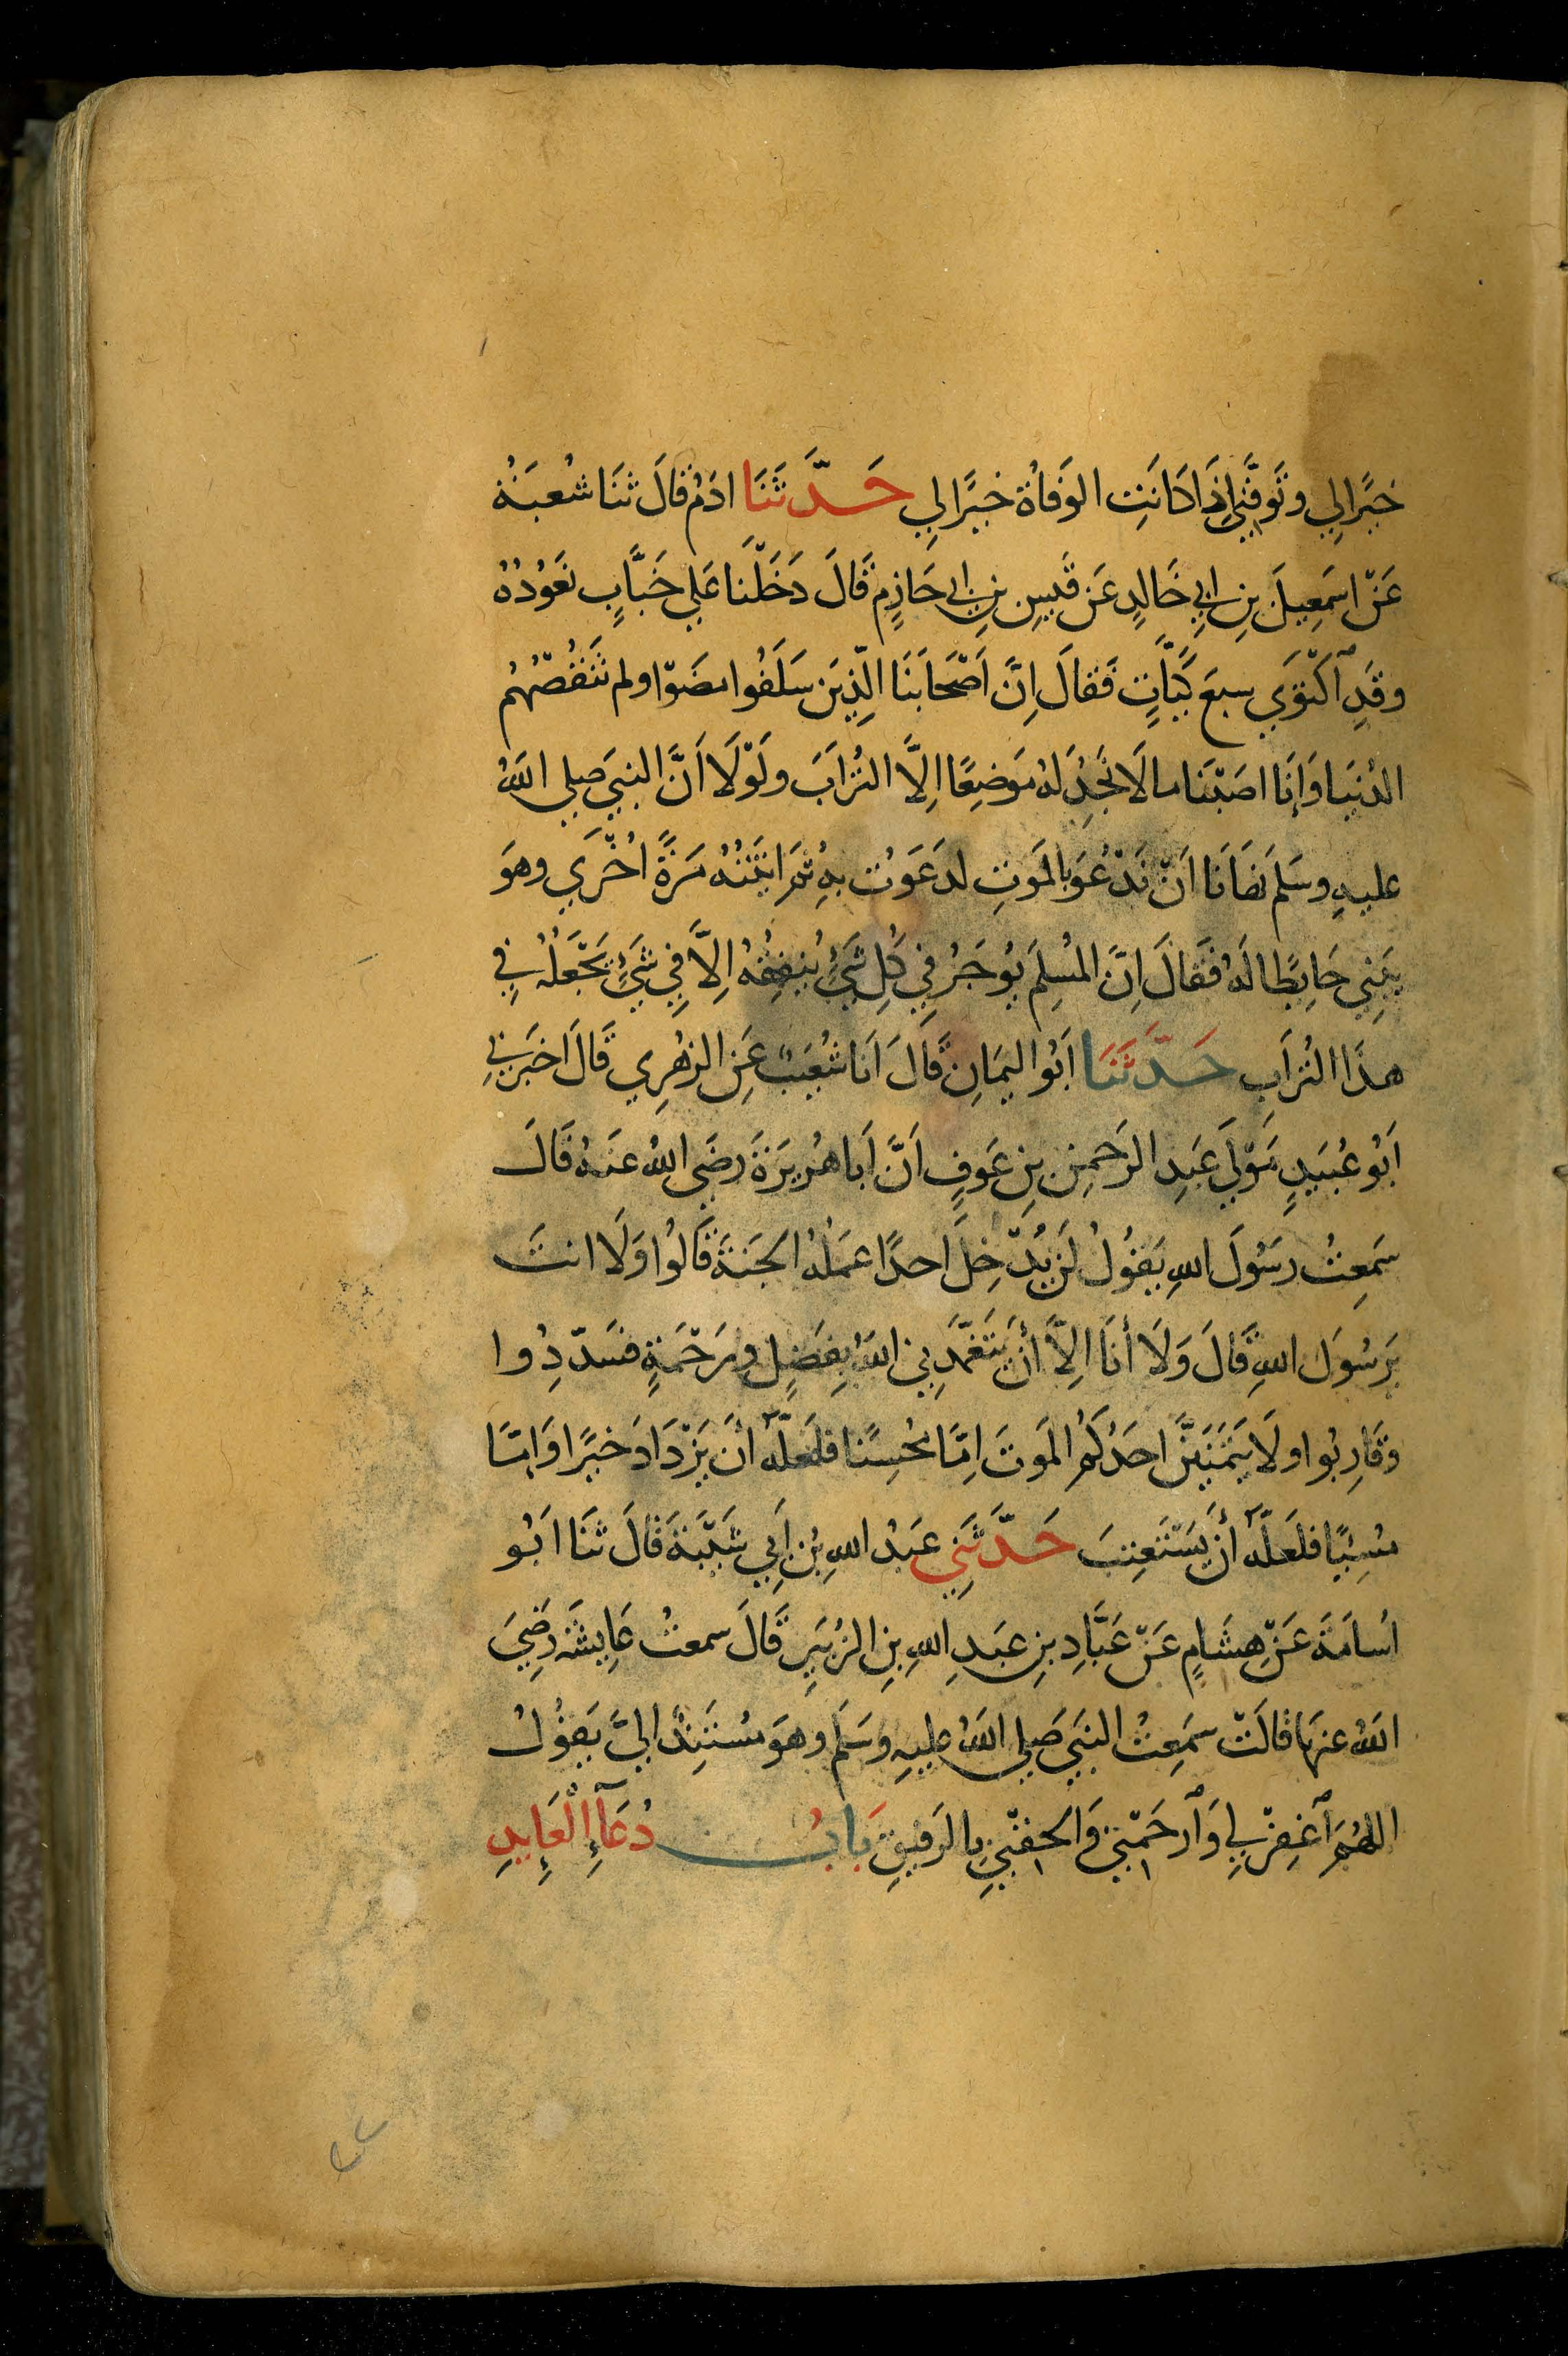 خَيْرًا لِي وتَوَفَّنِي إِذَا كَانَتِ الوَفَاةُ خَيْرًا لِي حَدَّثَنَا ادَمُ قَالَ ثنَا شُعْبَةُ
عَنْ اسمَعِيلَ بنِ ابِي خَالِدٍ عَن قَيسِ بنِ ابي حَازِمٍ قَالَ دَخَلْنَا عَلي خَبَّابٍ نَعُودُهُ
وقَدِ اكْتَوَي سبعَ كَيَّاتٍ فَقالَ اِنَّ اَصْحَابَنَا الَّذِينَ سَلَفُوا مضَوْا ولم تَنْقُصْهُم
الدُنيَا وَاِنَا اصَبْنَا ما لَا نَجِدُ لهُ مَوضِعًا اِلَّا التُرَابَ ولَوْلَا اَنَّ النبيَ صلي اللهُ
عليهِ وسَلم نهَانَا اَنْ نَدْعُوَ بِالمَوتِ لدَعَوتُ بهِ ثمَ اتَيْتُهُ مَرَةً اُخْرَي وهوَ
يَبنِي حَايِطًا لَهُ فَقالَ اِنَّ المُسلِمَ يُوجَرُ فِي كُلِ شَيْءٍ يُنفِقُهُ اِلَّا فِي شَيْءٍ يَجْعَلُهُ فِي
هذَا التُرَابِ حَدَّثَنَا اَبُو اليَمَانِ قَالَ اَنَا شُعَيبٌ عَنِ الزهْرِي قَالَ اَخبَرنِي
اَبُو عُبَيدٍ مَوْلَي عَبدِ الرَحمنِ بنِ عَوفٍ اَنَّ اَبَا هُريرَةَ رضَي اللهُ عنهُ قَالَ
سَمِعتُ رسُولَ اللهِ يَقُولُ لَن يُدْخِلَ اَحدًا عمَلُهُ الجَنةَ قَالُوا وَلَا انتَ
يَرسُولَ اللهِ قَالَ وَلَا أنَا اِلاَّ أنْ يَتَغَمَّدَنِي اللهُ بِفَضلٍ ورَحْمَةٍ فسَدّدُوا
وقَارِبُوا ولَا يَتَمَنَيَنَّ احَدُكُم المَوتَ اِمّا مُحْسِنًا فلَعَلَّهُ أنْ يَزْدَادَ خيرًا وَاِمّا
مُسِيًا فلعَلَّهُ أنْ يَسْتَعتِبَ حَدَّثَنِي عَبدُ اللهِ بنُ اَبِي شَيْبَةَ قَالَ ثنَا اَبُو
اُسَامَةَ عَنْ هِشَامٍ عَنْ عَبَّادِ بنِ عبَدِ اللهِ بنِ الزُبَيرِ قَالَ سمعتُ عَايِشَةَ رضِيَ
اللهُ عنهَا قَالَتْ سَمِعتُ النَبيَ صَلي اللهُ عليهِ وسَلم وهوَ مسْتَنِدٌ اليَّ يَقُولُ
اللهُمَ اغْفِرْ لِي وَارحَمْنِي وَالحِقْنِي بِالرَفيقِ بَابُ دُعَآءِ الْعَايِدِ